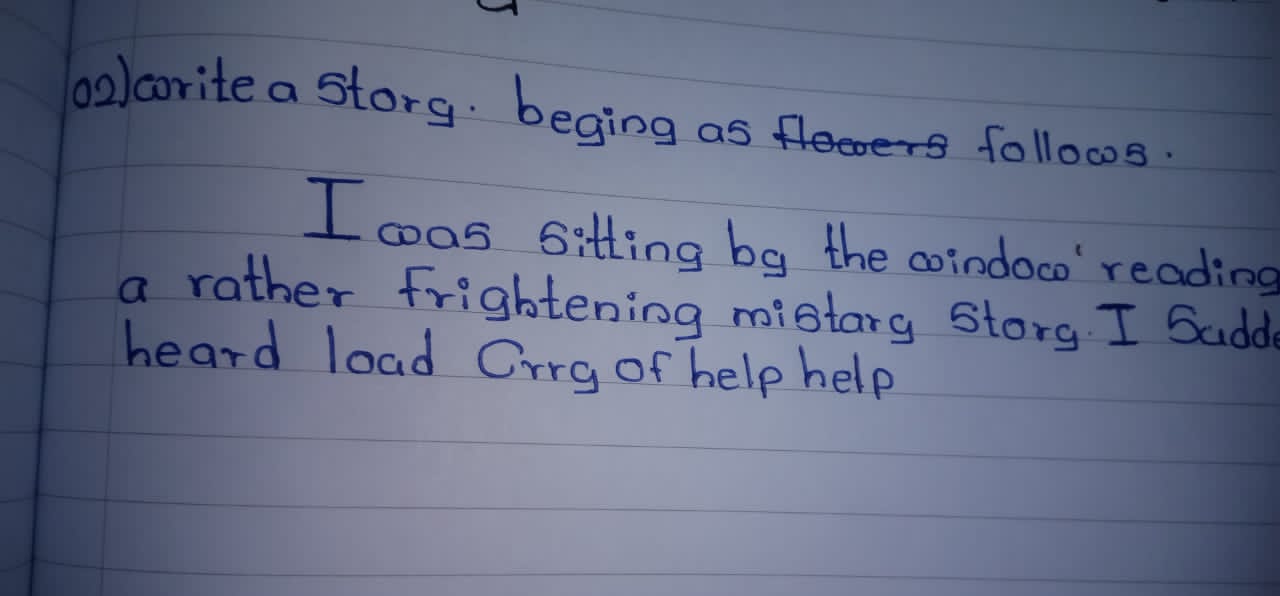 02) write a Story. beging as flowers follows.
I was sitting by the window' reading
a rather frightening mistary Story. I Sudde
heard load Crry of help help